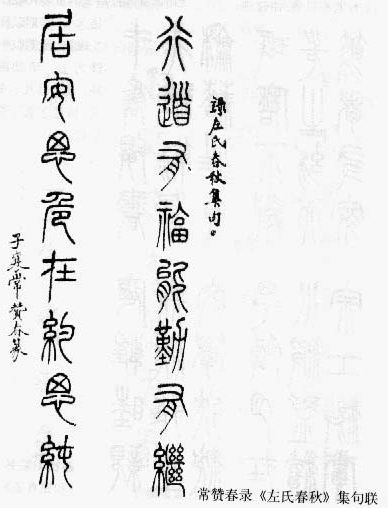 錄左氏春秋集句。
行道有福能勤有繼
居安思危在約思純
子襄常贊春篆
常赞春录《左氏春秋》集句联